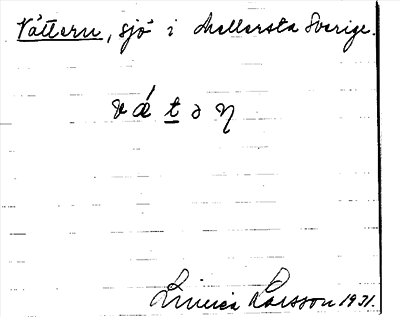 Vättern, sjö i mellersta Sverige.
vǽtən
Linnéa Larsson 1931.